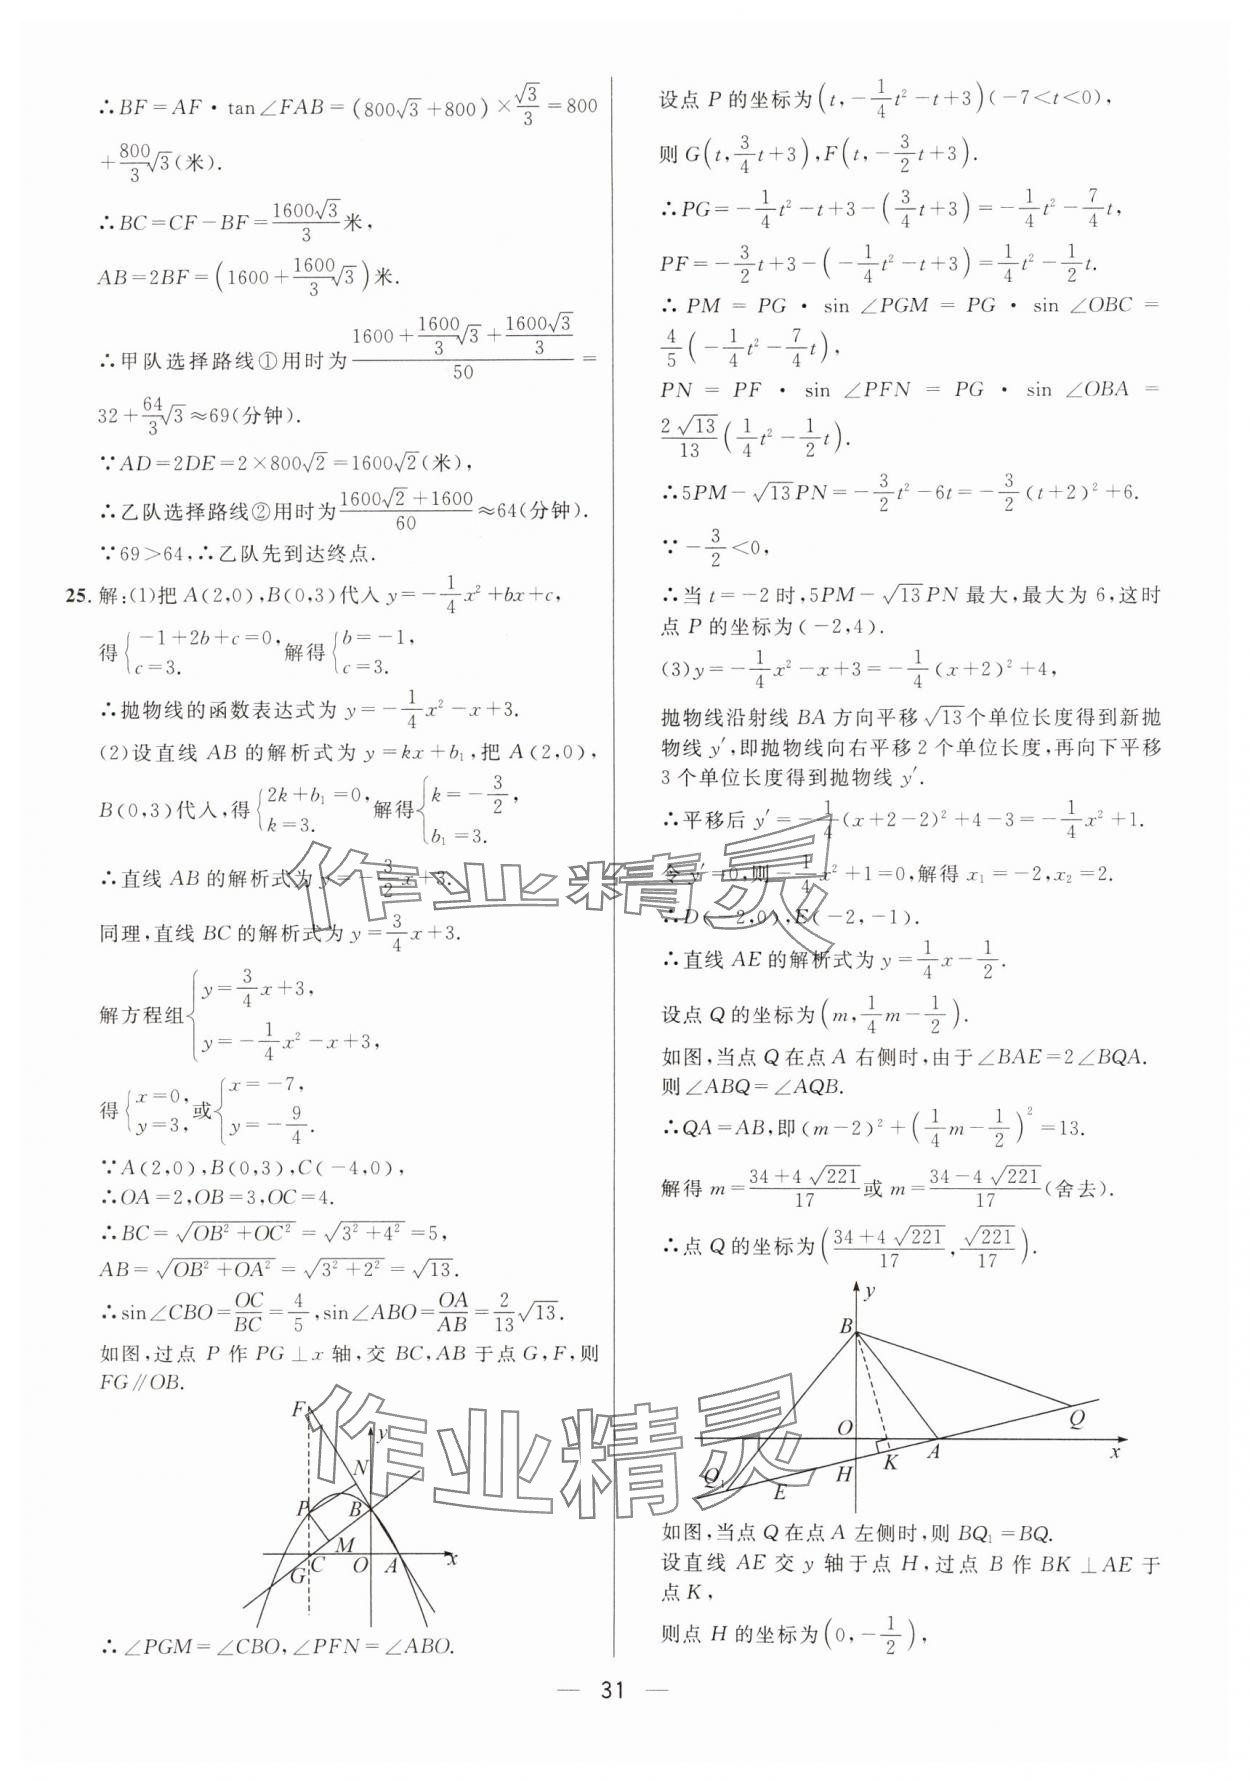 ∴BF=AF·tan∠FAB=(800√3+800)×√3/3=800
+800/3√3(米).
∴BC=CF-BF=1600√3/3米,
AB=2BF=(1600+1600/3√3)米.
∴甲队选择路线①用时为(1600+1600/3√3+1600√3/3)/50=
32+64/3√3≈69(分钟).
∵AD=2DE=2×800√2=1600√2(米),
∴乙队选择路线②用时为(1600√2+1600)/60≈64(分钟).
∵69>64,∴乙队先到达终点.
25.解:(1)把A(2,0),B(0,3)代入y=-1/4x²+bx+c,
得{-1+2b+c=0, c=3. 解得{b=-1, c=3.
∴抛物线的函数表达式为y=-1/4x²-x+3.
(2)设直线AB的解析式为y=kx+b₁,把A(2,0),
B(0,3)代入,得{2k+b₁=0, k=3. 解得{k=-3/2, b₁=3.
∴直线AB的解析式为y=-3/2x+3.
同理,直线BC的解析式为y=3/4x+3.
解方程组{y=3/4x+3, y=-1/4x²-x+3,
得{x=0, y=3, 或{x=-7, y=-9/4.
∵A(2,0),B(0,3),C(-4,0),
∴OA=2,OB=3,OC=4.
∴BC=√(OB²+OC²)=√(3²+4²)=5,
AB=√(OB²+OA²)=√(3²+2²)=√13.
∴sin∠CBO=OC/BC=4/5,sin∠ABO=OA/AB=2/13√13.
如图,过点P作PG⊥x轴,交BC,AB于点G,F,则
FG∥OB.
F
y
N
P
B
M
G
C
O
A
x
∴∠PGM=∠CBO,∠PFN=∠ABO.
设点P的坐标为(t,-1/4t²-t+3)(-7<t<0),
则G(t,3/4t+3),F(t,-3/2t+3).
∴PG=-1/4t²-t+3-(3/4t+3)=-1/4t²-7/4t,
PF=-3/2t+3-(-1/4t²-t+3)=1/4t²-1/2t.
∴PM=PG·sin∠PGM=PG·sin∠OBC=
4/5(-1/4t²-7/4t),
PN=PF·sin∠PFN=PG·sin∠OBA=
2√13/13(1/4t²-1/2t).
∴5PM-√13PN=-3/2t²-6t=-3/2(t+2)²+6.
∵-3/2<0,
∴当t=-2时,5PM-√13PN最大,最大为6,这时
点P的坐标为(-2,4).
(3)y=-1/4x²-x+3=-1/4(x+2)²+4,
抛物线沿射线BA方向平移√13个单位长度得到新抛
物线y′,即抛物线向右平移2个单位长度,再向下平移
3个单位长度得到抛物线y′.
∴平移后y′=-1/4(x+2-2)²+4-3=-1/4x²+1.
令y′=0,则-1/4x²+1=0,解得x₁=-2,x₂=2.
∴D(-2,0),E(-2,-1).
∴直线AE的解析式为y=1/4x-1/2.
设点Q的坐标为(m,1/4m-1/2).
如图,当点Q在点A右侧时,由于∠BAE=2∠BQA.
则∠ABQ=∠AQB.
∴QA=AB,即(m-2)²+(1/4m-1/2)²=13.
解得m=(34+4√221)/17或m=(34-4√221)/17(舍去).
∴点Q的坐标为((34+4√221)/17,√221/17).
y
B
O
Q
A
x
K
H
Q₁
E
如图,当点Q在点A左侧时,则BQ₁=BQ.
设直线AE交y轴于点H,过点B作BK⊥AE于
点K,
则点H的坐标为(0,-1/2),
— 31 —
作业精灵
作业精灵